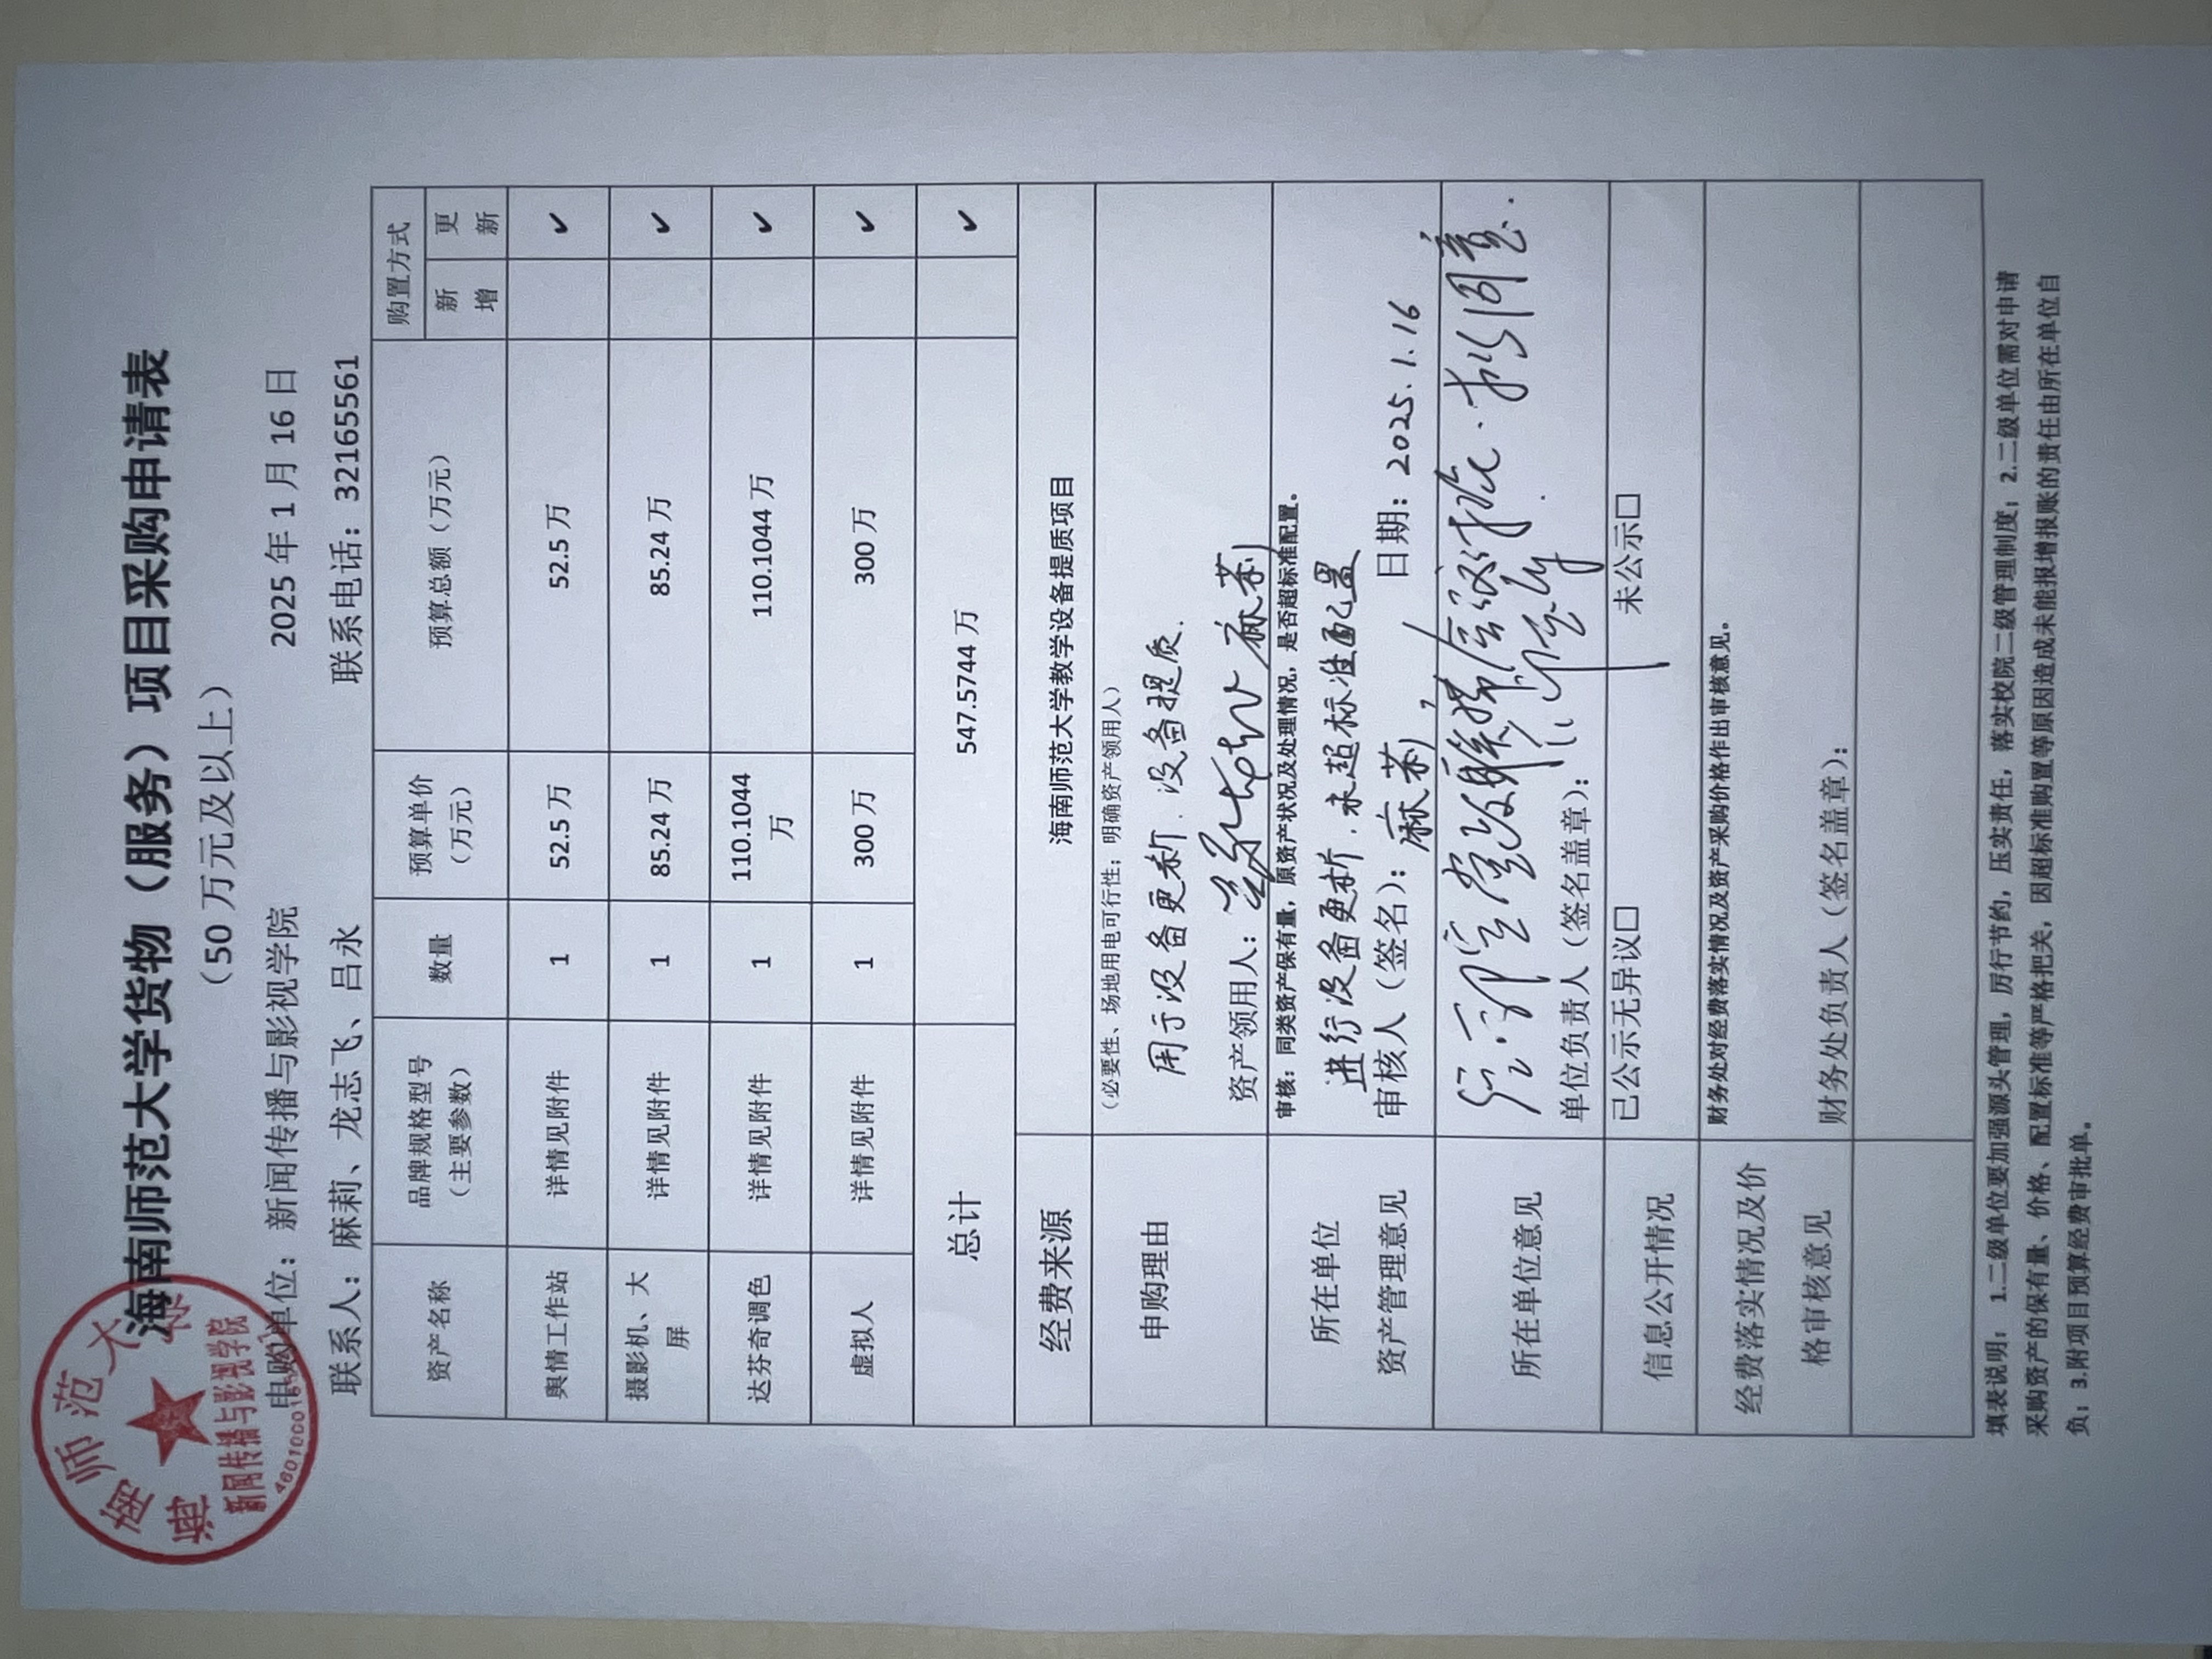 海南师范大学货物（服务）项目采购申请表
（50 万元及以上）
申购单位：新闻传播与影视学院 2025 年 1 月 16 日
联系人：麻莉、龙志飞、吕永 联系电话：32165561
海南师范大
新闻传播与影视学院
资产名称 品牌规格型号（主要参数） 数量 预算单价（万元） 预算总额（万元） 购置方式 新增 更新
舆情工作站 详情见附件 1 52.5 万 52.5 万 ✓
摄影机、大屏 详情见附件 1 85.24 万 85.24 万 ✓
达芬奇调色 详情见附件 1 110.1044 万 110.1044 万 ✓
虚拟人 详情见附件 1 300 万 300 万 ✓
总计 547.5744 万 ✓
经费来源 海南师范大学教学设备提质项目
申购理由
（必要性、场地用电可行性；明确资产领用人）
用于设备更新，设备提质.
资产领用人： 麻莉
所在单位
资产管理意见
审核：同类资产保有量，原资产状况及处理情况，是否超标准配置。
进行设备更新，未超标准配置
审核人（签名）：麻莉 日期：2025.1.16
所在单位意见
同意.
单位负责人（签名盖章）：
信息公开情况 已公示无异议□ 未公示□
经费落实情况及价
格审核意见
财务处对经费落实情况及资产采购价格作出审核意见。
财务处负责人（签名盖章）：
填表说明： 1.二级单位要加强源头管理，厉行节约，压实责任，落实校院二级管理制度；2.二级单位需对申请
采购资产的保有量、价格、配置标准等严格把关，因超标准购置等原因造成未能报增报账的责任由所在单位自
负；3.附项目预算经费审批单。